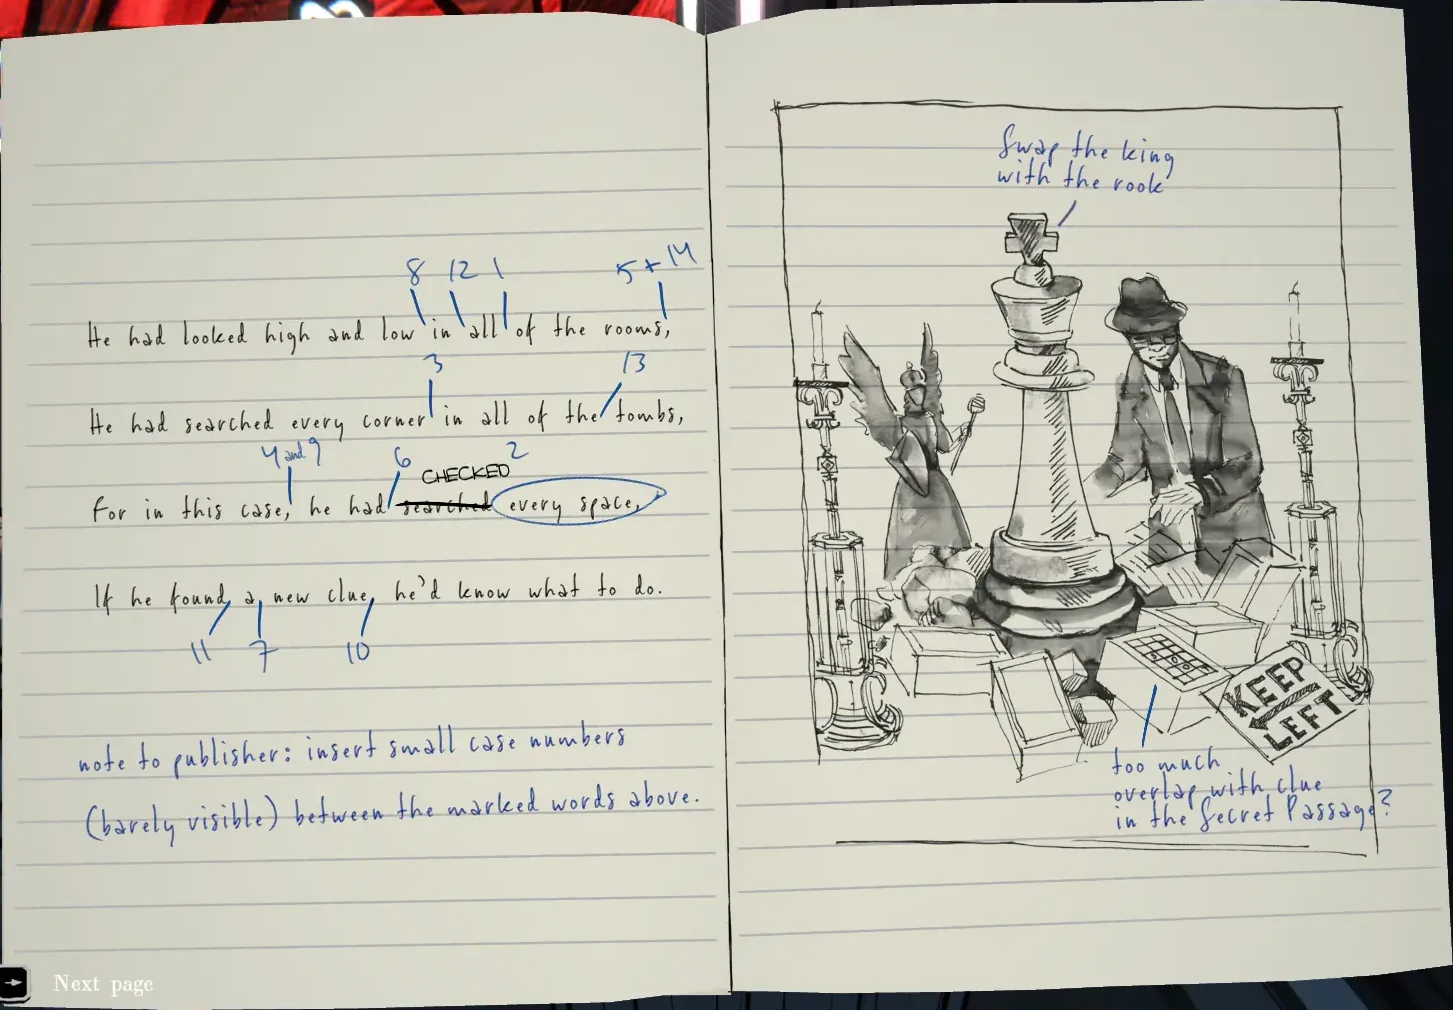 8 12 1 5 + 14
He had looked high and low in all of the rooms,
3 13
He had searched every corner in all of the tombs,
4 and 9 6 CHECKED 2
For in this case, he had searched every space,
If he found a new clue, he'd know what to do.
11 7 10
note to publisher: insert small case numbers
(barely visible) between the marked words above.
Next page
Swap the king
with the rook
KEEP
LEFT
too much
overlap with clue
in the Secret Passage?